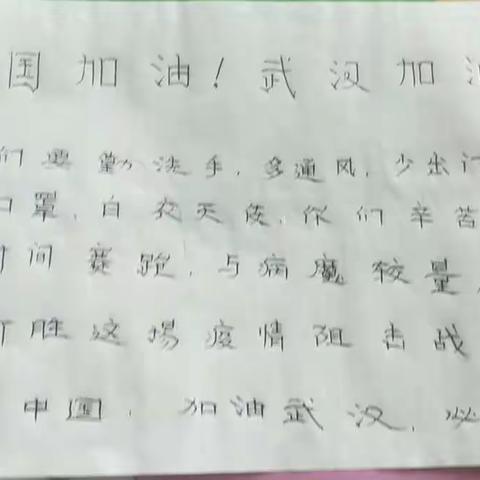 国加油！武汉加
们要勤洗手，多通风，少出门
口罩，白衣天使，你们辛苦
时间赛跑，与病魔较量，
打胜这场疫情阻击战
中国，加油武汉，必